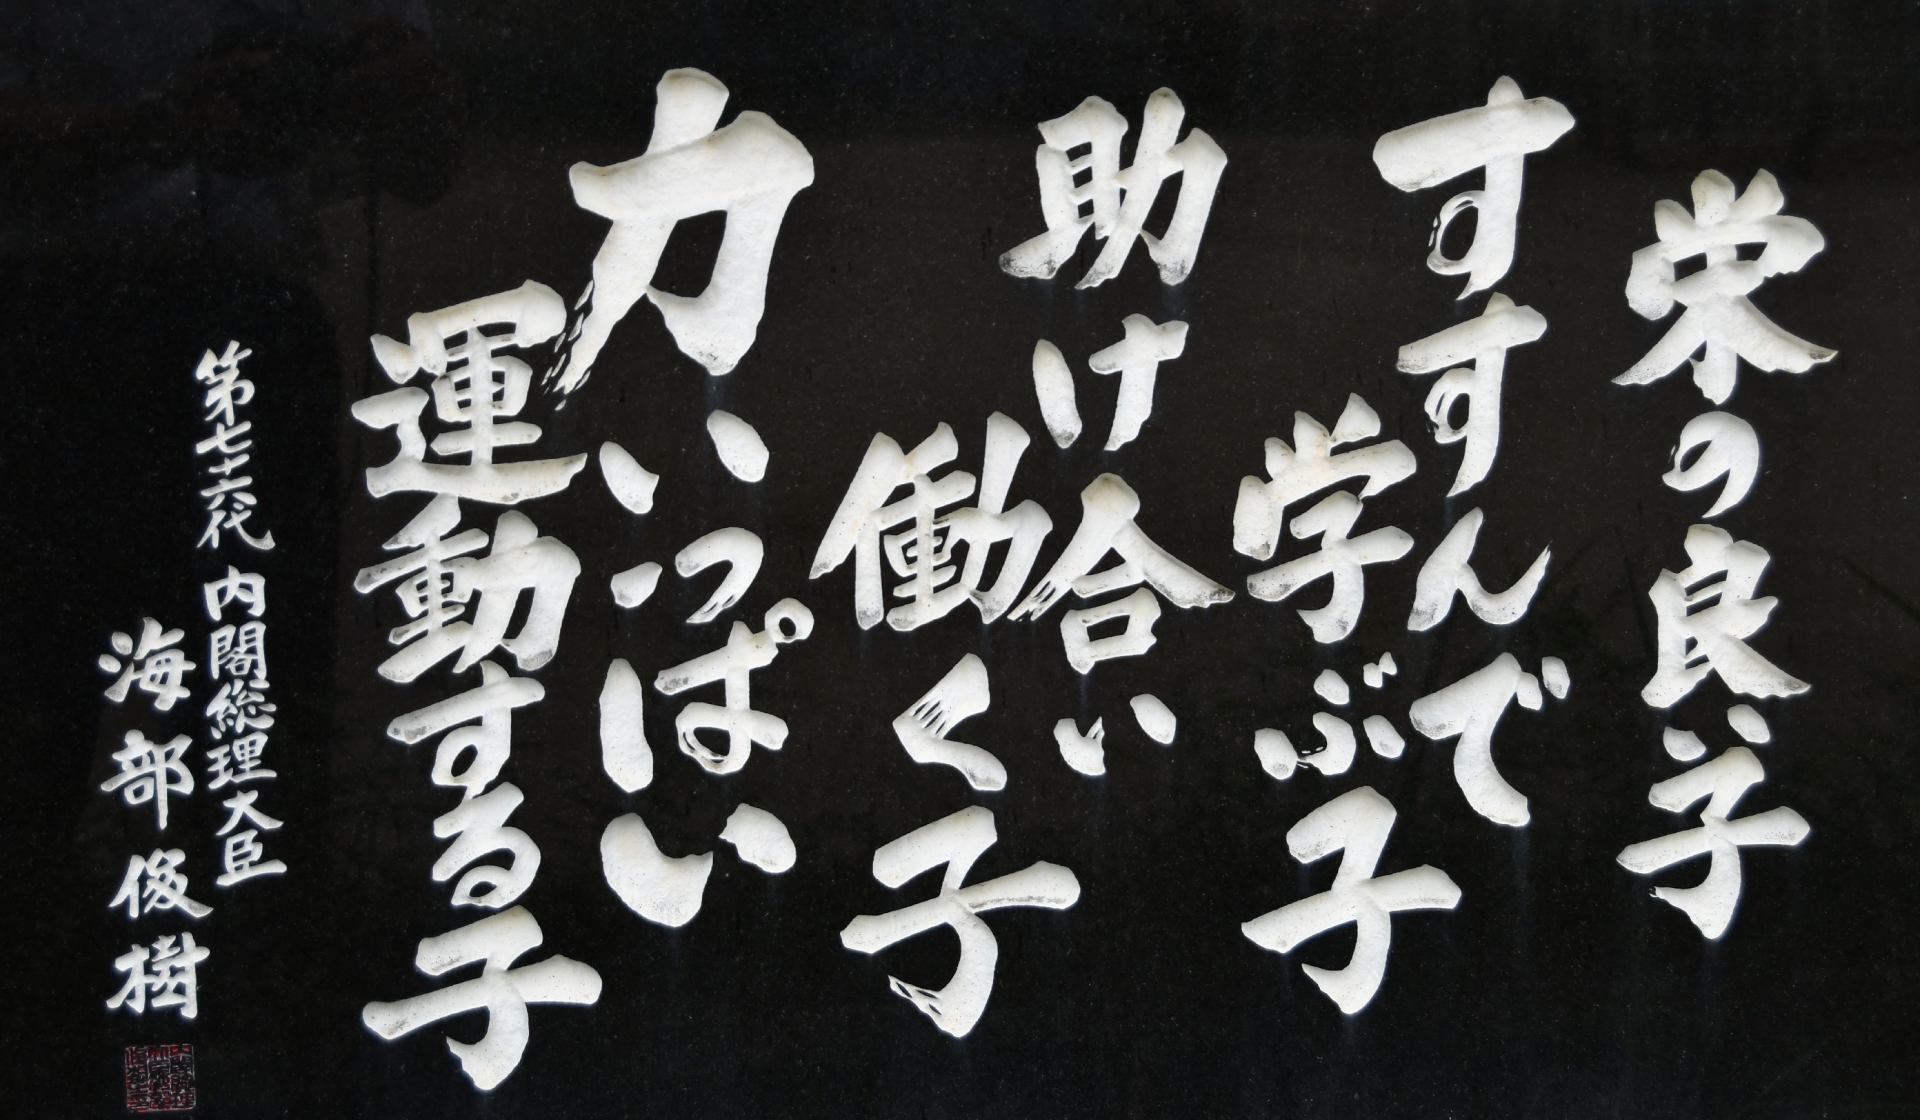 栄の良い子
すすんで
学ぶ子
助け合い
働く子
力いっぱい
運動する子
第七十六代 内閣総理大臣
海部俊樹